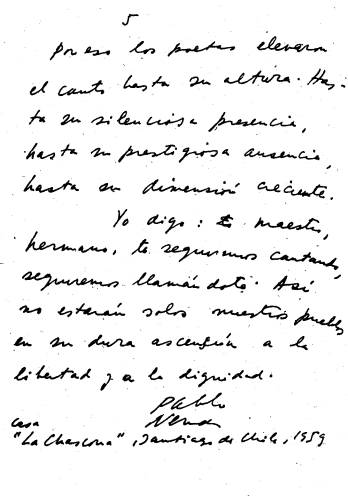 5
Por eso los poetas elevaron
el canto hasta su altura. Has-
ta su silenciosa presencia,
hasta su prestigiosa ausencia,
hasta su dimensión creciente.
Yo digo: maestro,
hermano, te seguiremos cantando,
seguiremos llamándote. Así
no estarán solos nuestros pueblos
en su dura ascensión a la
libertad y a la dignidad.
Pablo
Neruda
Casa
"La Chascona", Santiago de Chile, 1959